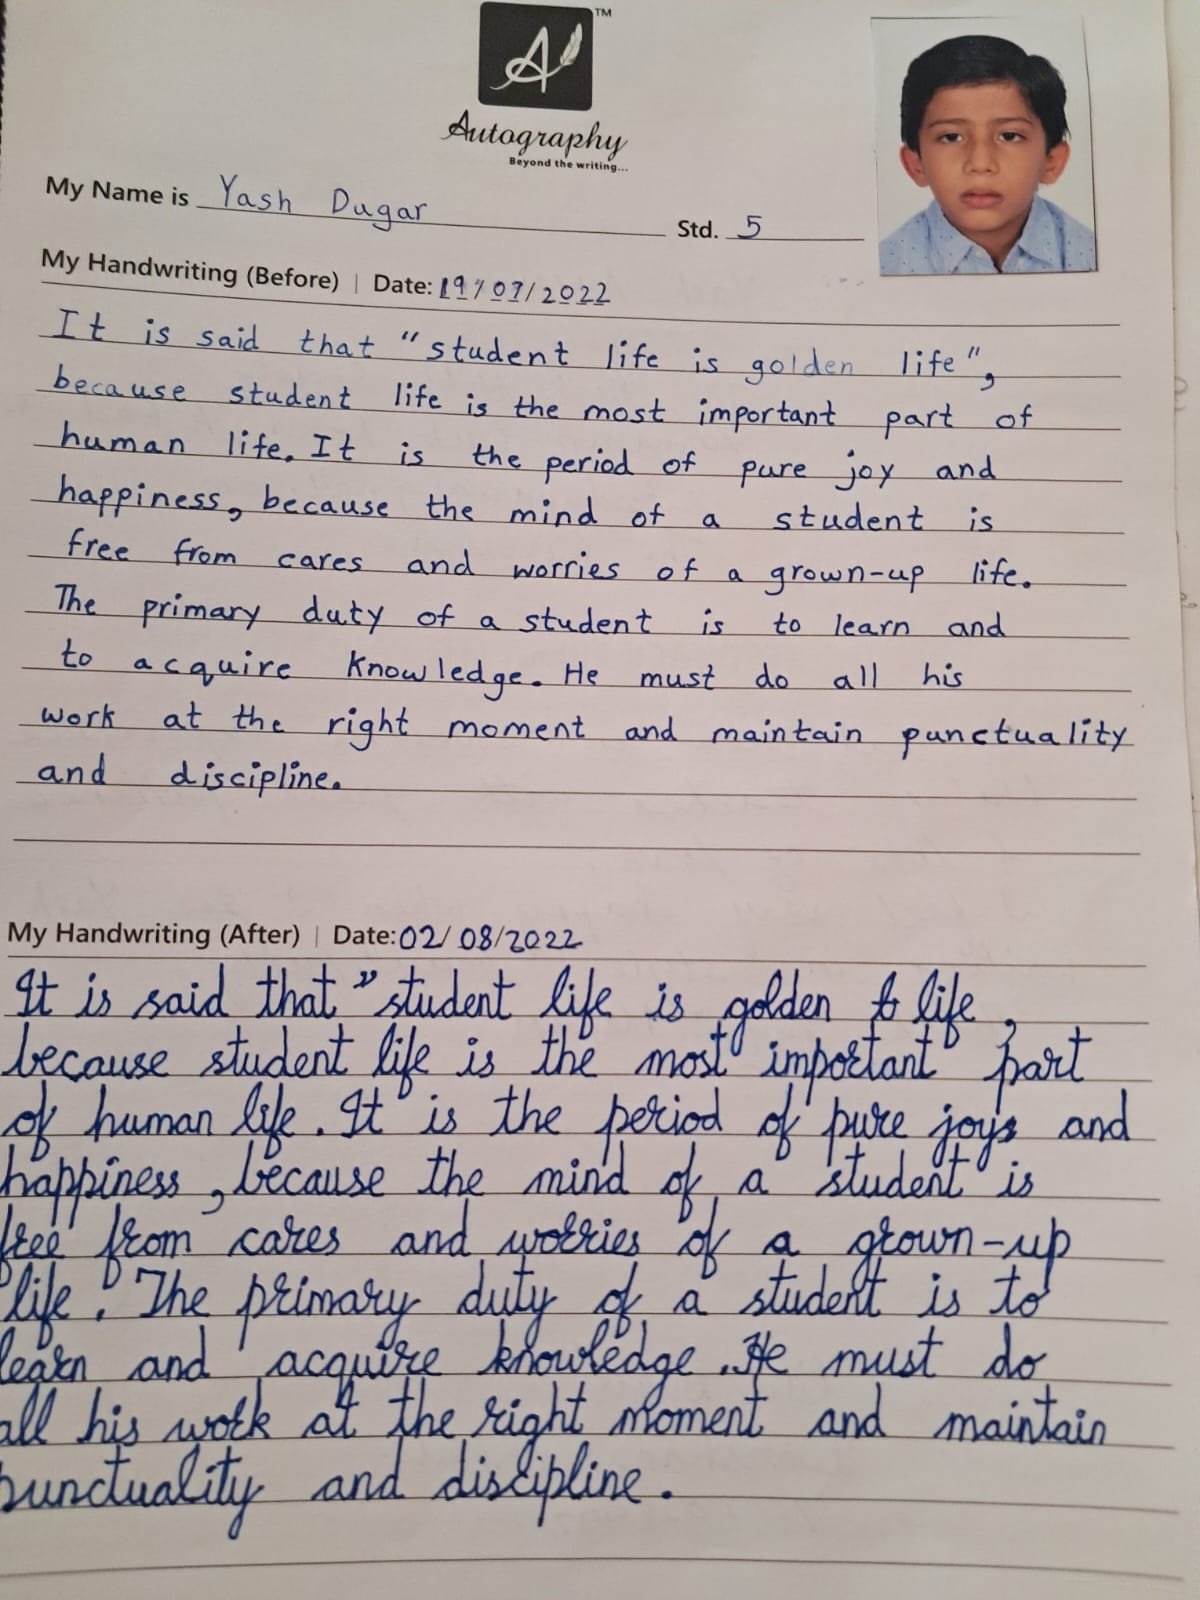 TM
A
Autography
Beyond the writing...
My Name is Yash Dugar
Std. 5
My Handwriting (Before) | Date: 19/07/2022
It is said that "student life is golden life",
because student life is the most important part of
human life. It is the period of pure joy and
happiness, because the mind of a student is
free from cares and worries of a grown-up life.
The primary duty of a student is to learn and
to acquire knowledge. He must do all his
work at the right moment and maintain punctuality
and discipline.
My Handwriting (After) | Date: 02/08/2022
It is said that "student life is golden life,
because student life is the most important part
of human life. It is the period of pure joys and
happiness, because the mind of a student is
free from cares and worries of a grown-up
life. The primary duty of a student is to
learn and acquire knowledge. He must do
all his work at the right moment and maintain
punctuality and discipline.